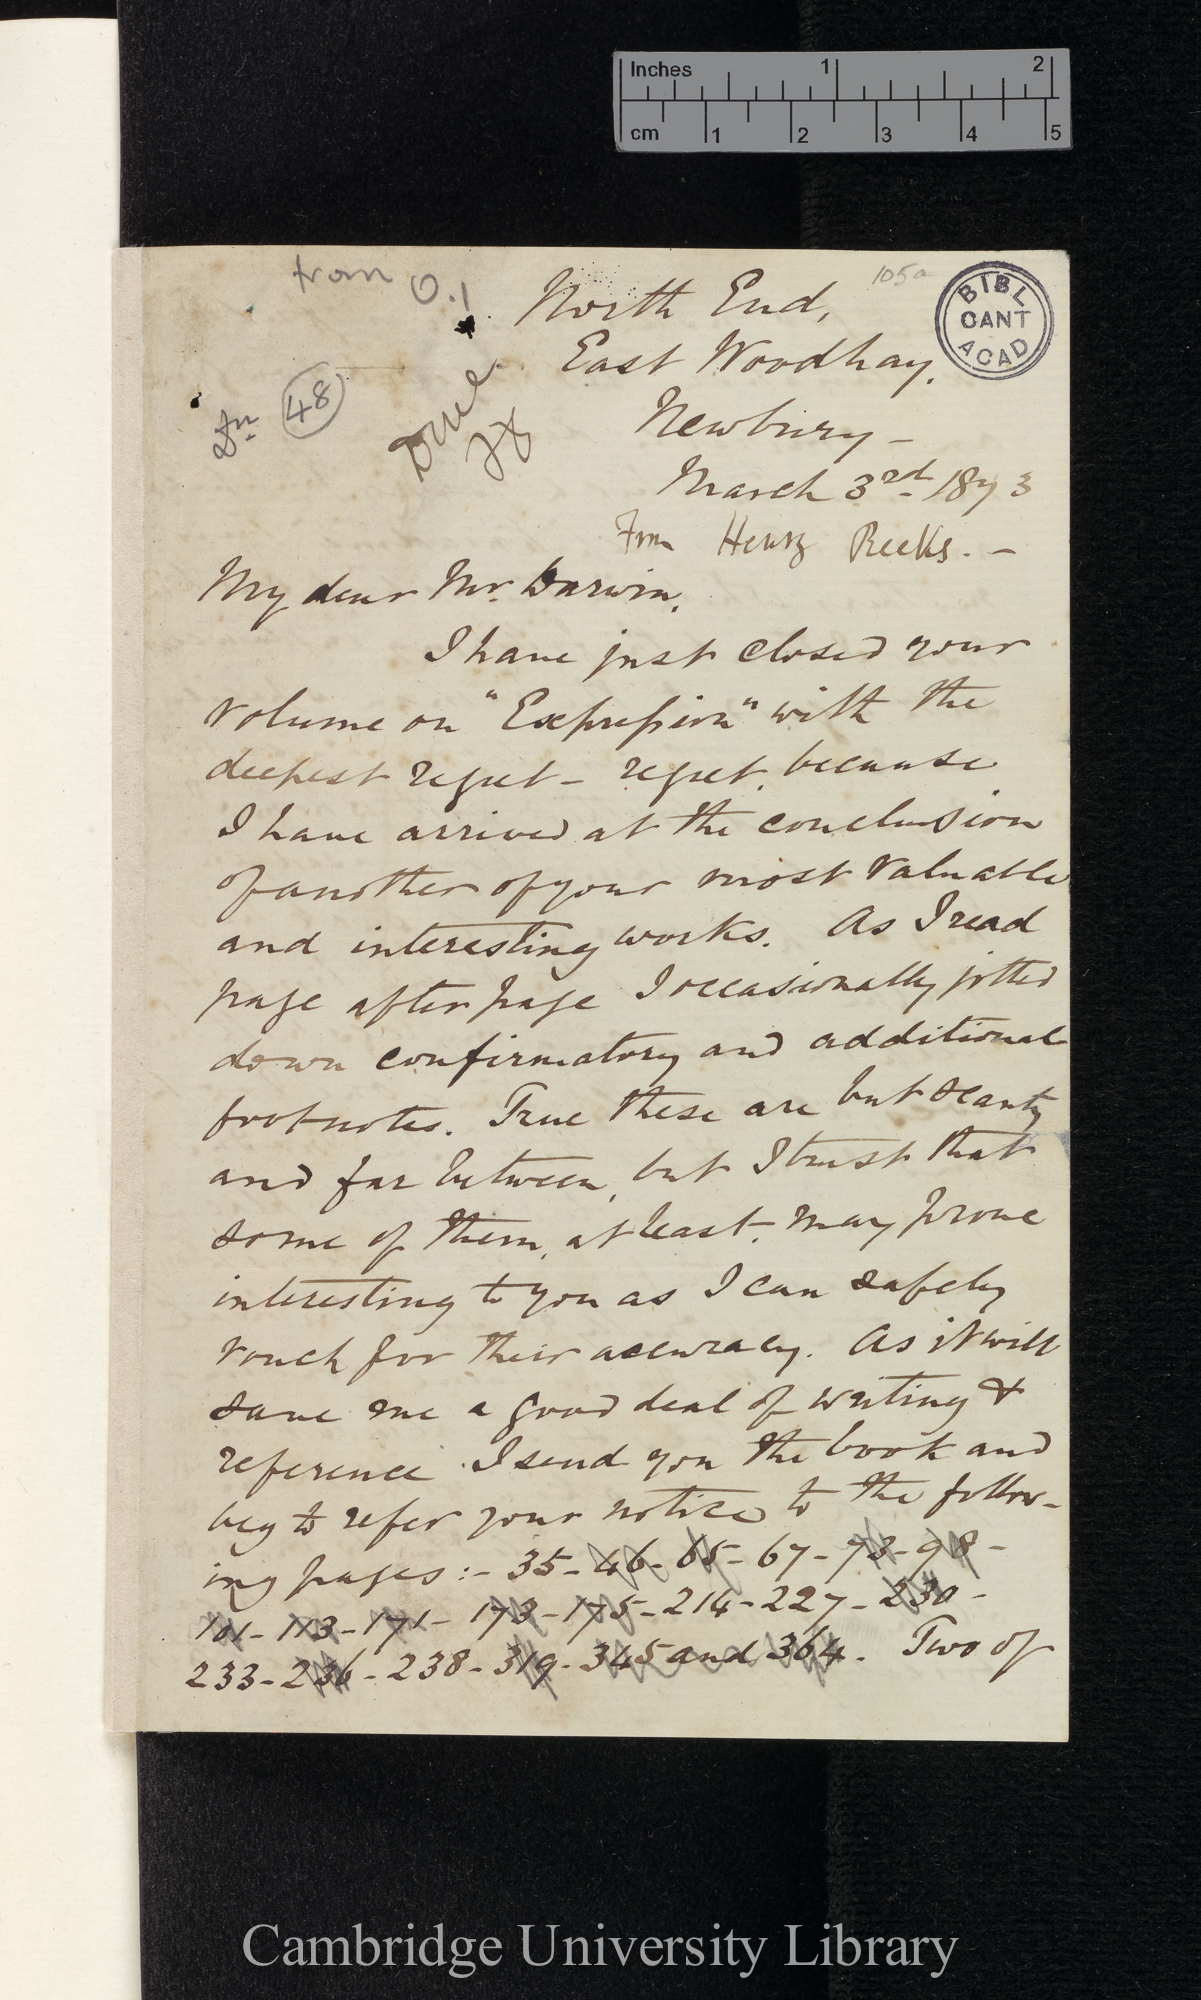 Inches 1 2
cm 1 2 3 4 5
from O.1
105a
BIBL
CANT
ACAD
48
Done
North End,
East Woodhay,
Newbury –
March 3rd 1873
From Henry Reeks. –
My dear Mr. Darwin,
I have just closed your
volume on "Expression" with the
deepest regret – regret, because
I have arrived at the conclusion
of another of your most valuable
and interesting works. As I read
page after page I occasionally jotted
down confirmatory and additional
footnotes. True these are but scanty
and far between, but I trust that
some of them, at least, may prove
interesting to you as I can safely
vouch for their accuracy. As it will
save me a good deal of writing &
reference I send you the book and
beg to refer your notice to the follow-
ing pages :– 35 – 46 – 65 – 67 – 73 – 98 –
101 – 113 – 171 – 173 – 175 – 214 – 227 – 230 –
233 – 236 – 238 – 319 – 345 and 364. Two of
Cambridge University Library